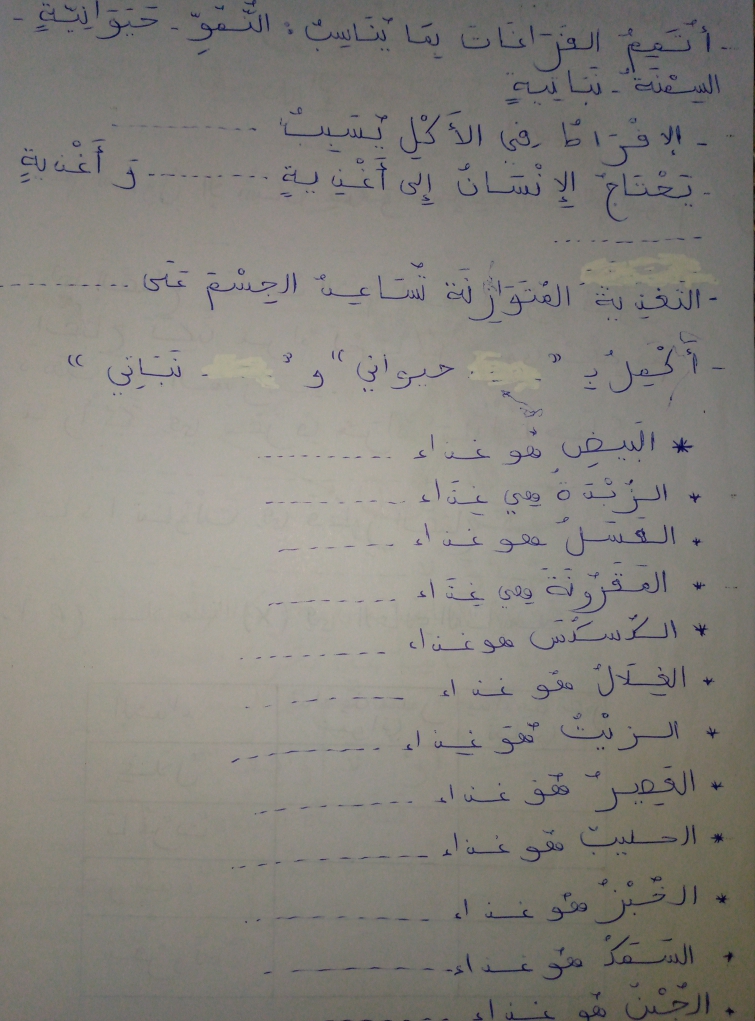 - أُتَمِّمُ الفَرَاغَاتِ بِمَا يُنَاسِبُ : النُّمُوِّ - حَيَوَانِيَّةٍ -
السِّمْنَةُ - نَبَاتِيَّةٍ
- الإِفْرَاطُ في الأَكْلِ يُسَبِّبُ ............
- يَحْتَاجُ الإِنْسَانُ إِلى أَغْذِيةٍ ............ وَ أَغْذيةٍ
............
- التَغْذِيةُ المُتَوَازِنَة تُسَاعِدُ الجِسْمَ عَلَى ............
- أُكْمِلُ بِـ " حيواني " و " نَبَاتِي "
* البَيضُ هُو غذاء ............
* الزُبْدَةُ هِي غِذَاء ............
* العَسَلُ هو غذاء ............
* المَقَرُونَةُ هِي غِذَاء ............
* الكُسْكُسُ هو غذاء ............
* الغِلَالُ هُو غذاء ............
* الزيْتُ هُوَ غِذاء ............
* العَصِيرُ هُوَ غذاء ............
* الحليبُ هُو غذاء ............
* الخُبْزُ هُو غذاء ............
* السَمَكُ هُو غذاء ............
* الجُبْنُ هُو غذاء ............